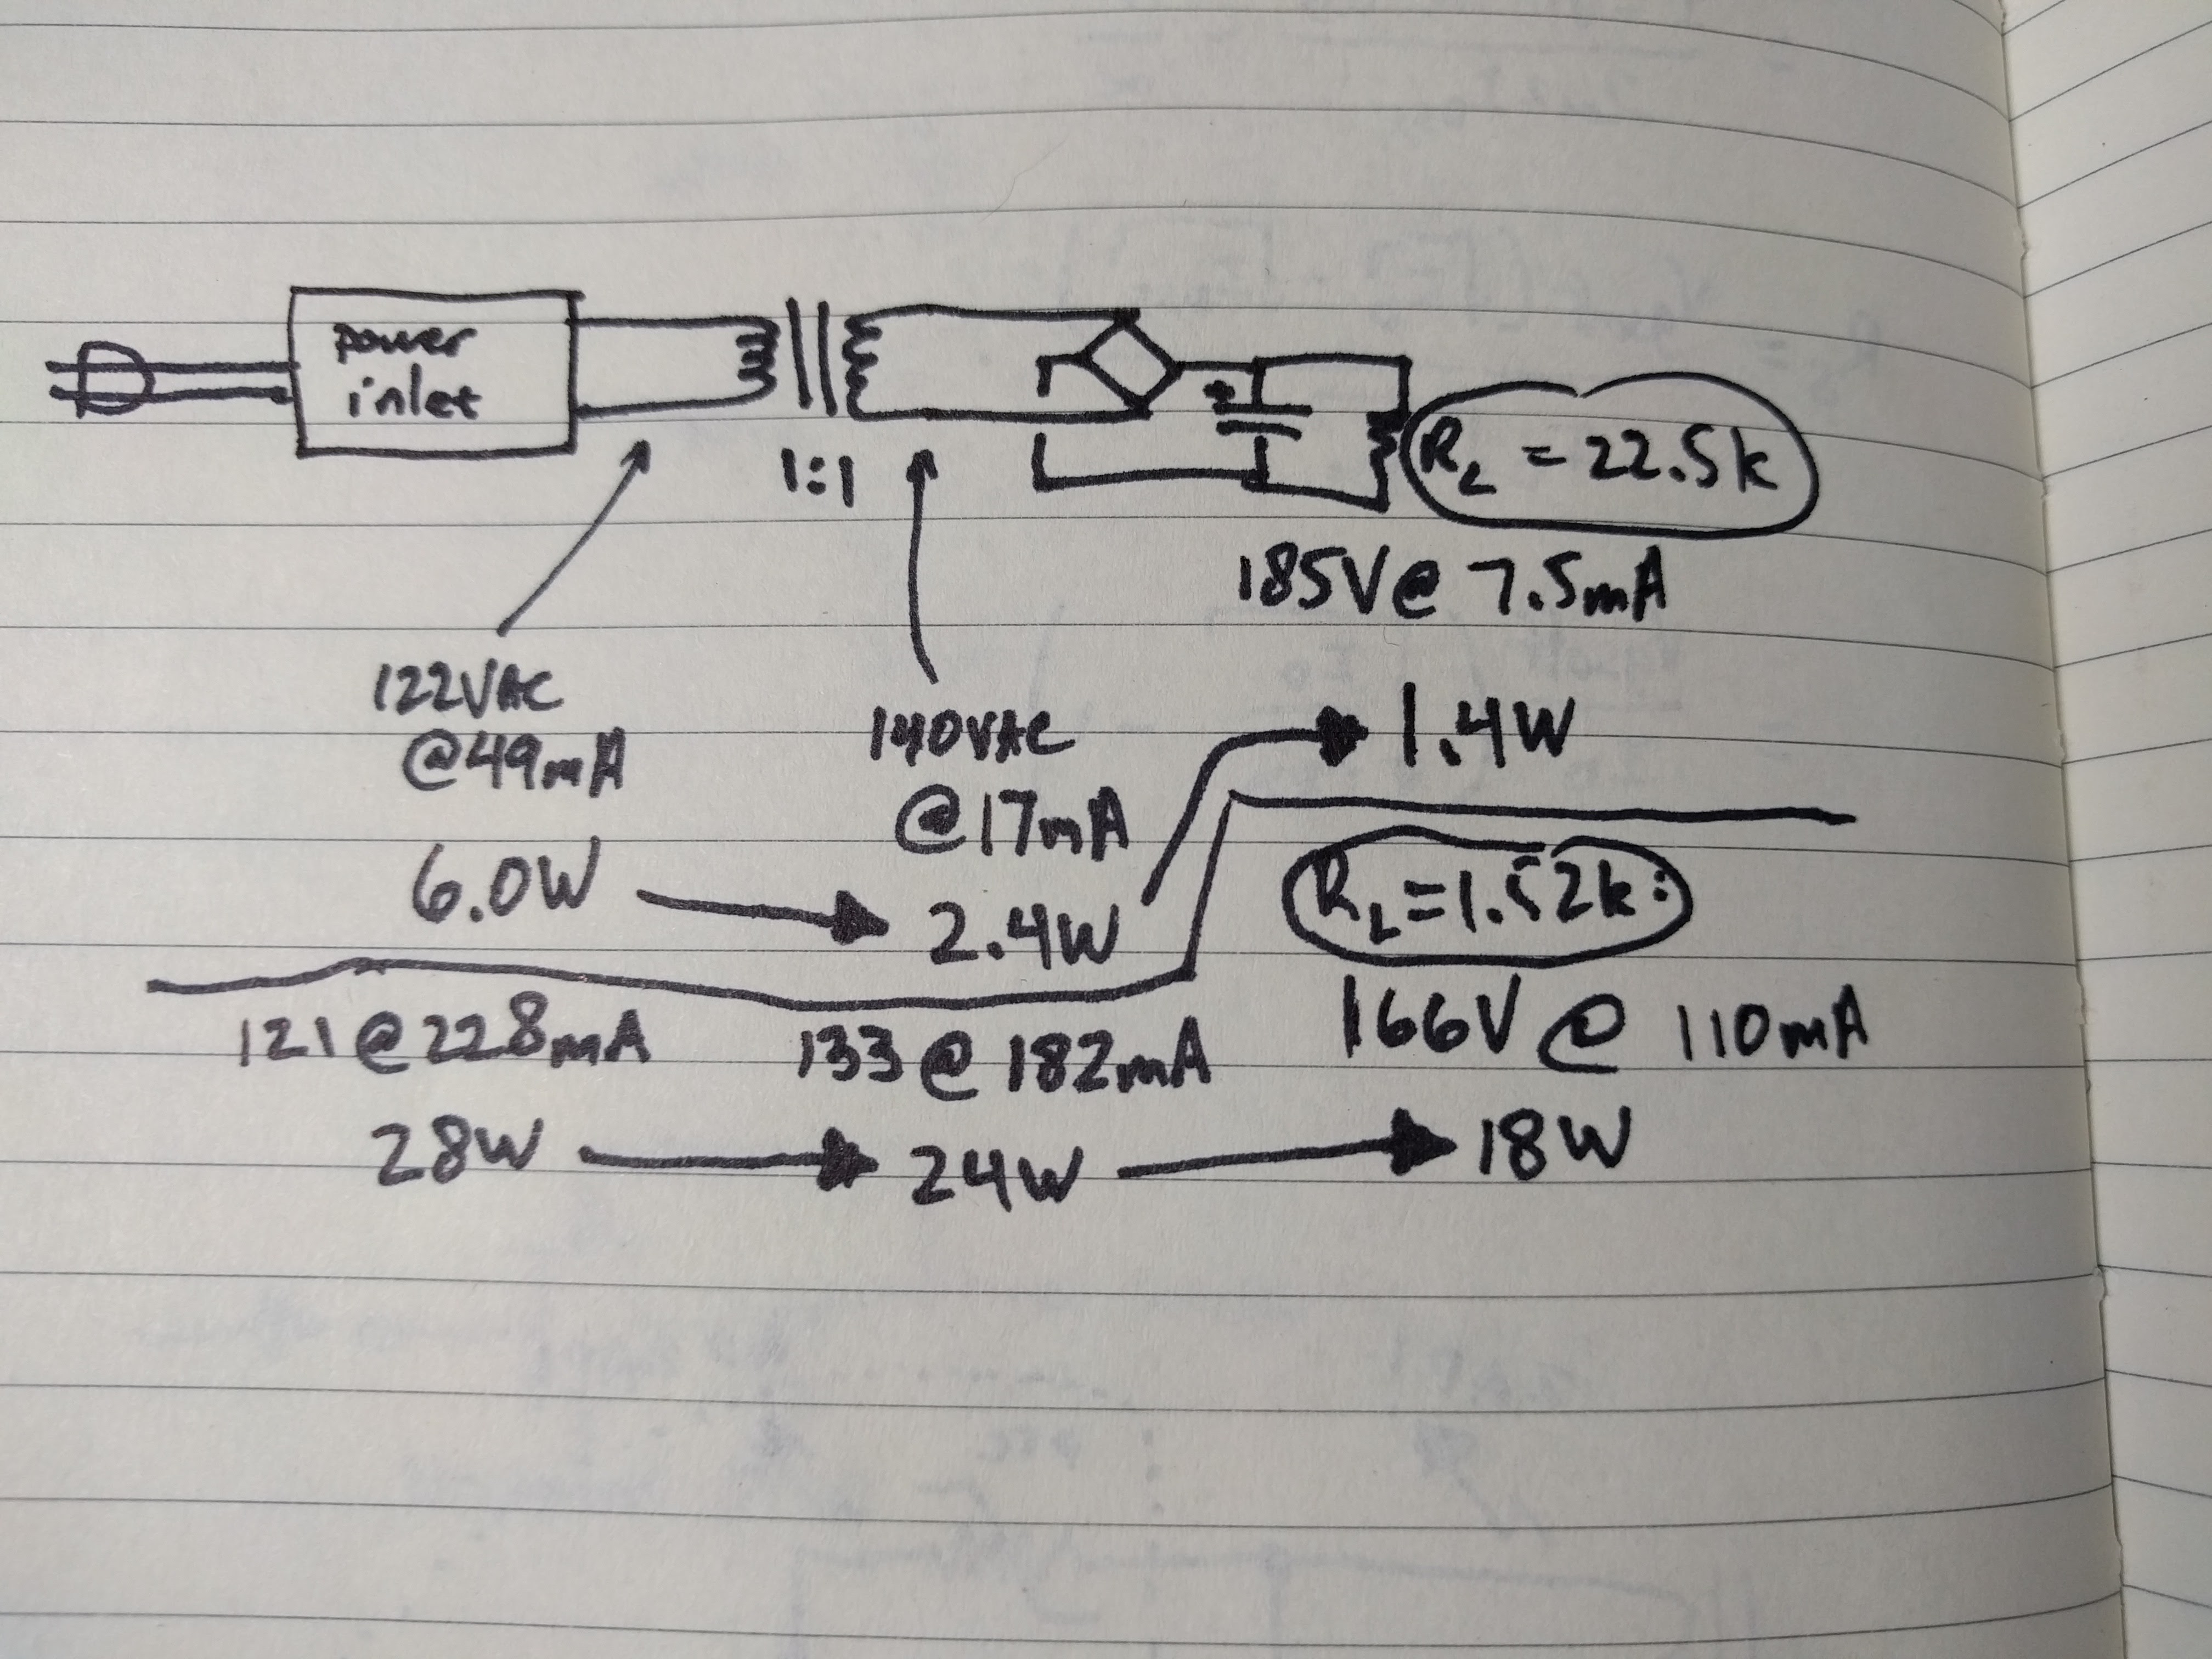 power
inlet
1:1
R_L = 22.5k
185V@ 7.5mA
122VAC
@49mA
140VAC
@17mA
6.0W
2.4W
1.4W
R_L=1.52k:
166V @ 110mA
121@228mA
133@182mA
28W
24W
18W